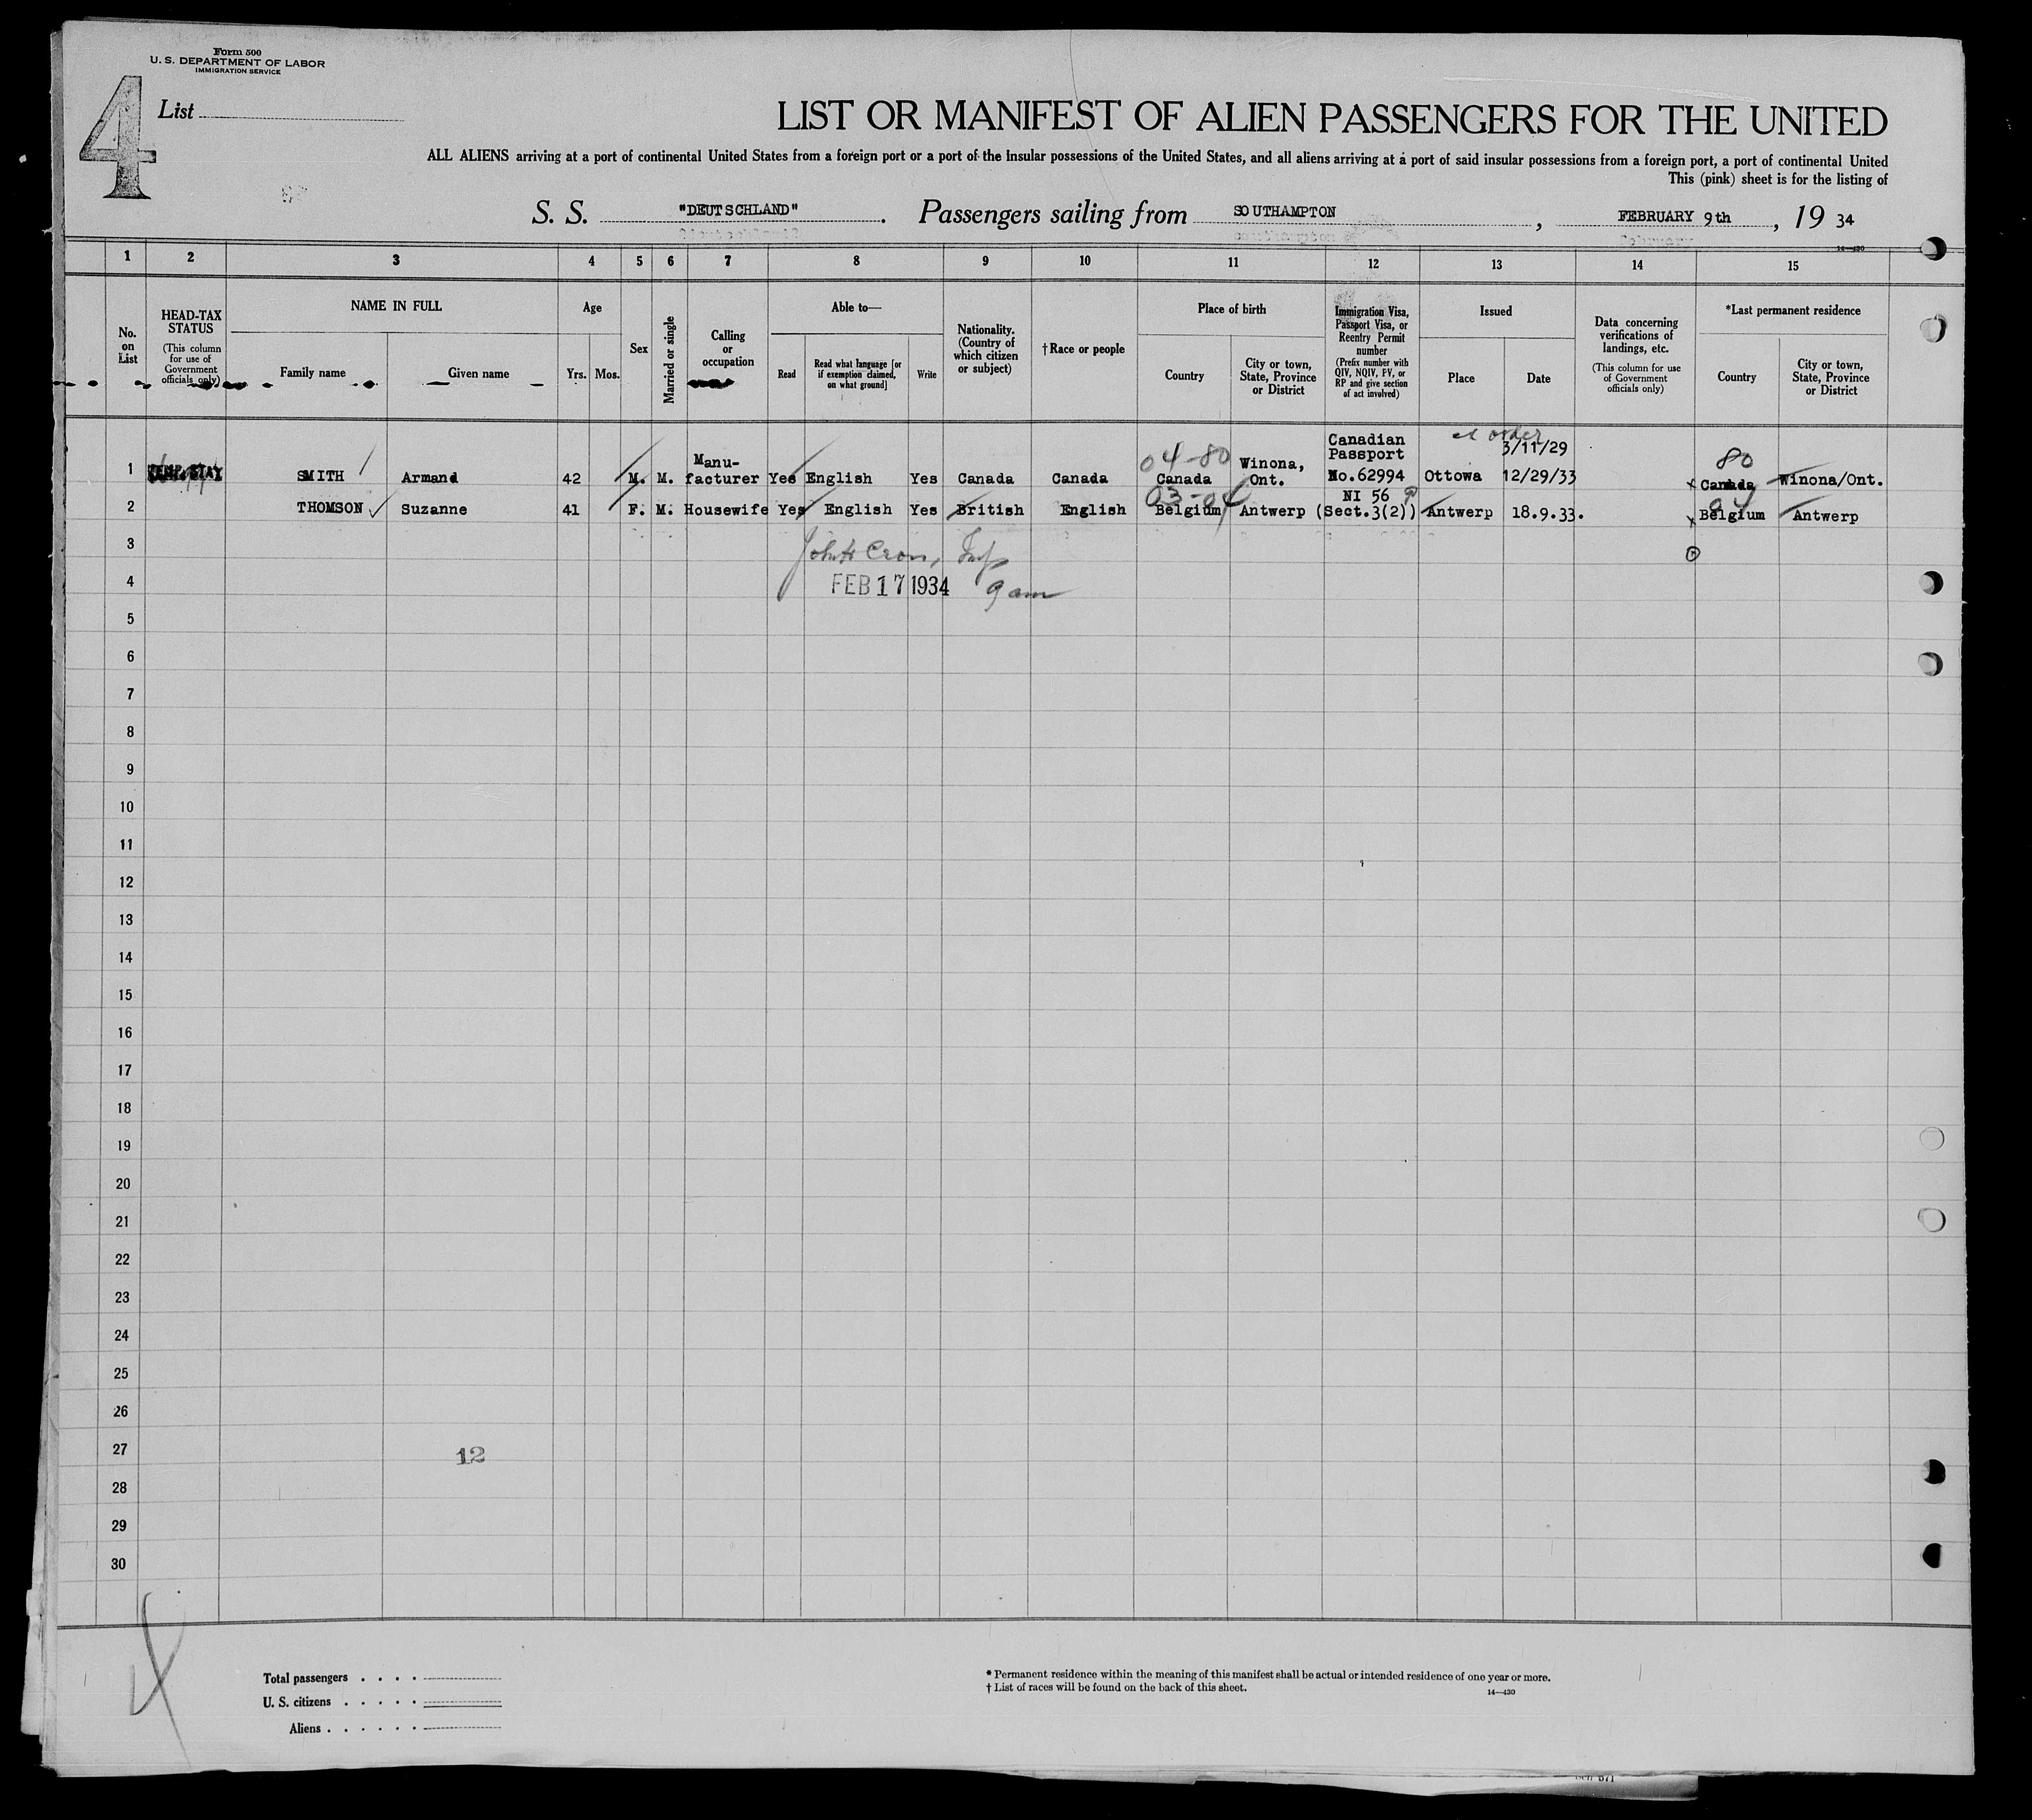 Form 500
U. S. DEPARTMENT OF LABOR
IMMIGRATION SERVICE
4
List
LIST OR MANIFEST OF ALIEN PASSENGERS FOR THE UNITED
ALL ALIENS arriving at a port of continental United States from a foreign port or a port of the insular possessions of the United States, and all aliens arriving at a port of said insular possessions from a foreign port, a port of continental United
This (pink) sheet is for the listing of
S. S. "DEUTSCHLAND". Passengers sailing from SOUTHAMPTON, FEBRUARY 9th, 19 34
14—430
1 2 3 4 5 6 7 8 9 10 11 12 13 14 15
No. on List
HEAD-TAX STATUS
(This column for use of Government officials only)
NAME IN FULL
Family name
Given name
Age
Yrs.
Mos.
Sex
Married or single
Calling or occupation
Able to—
Read
Read what language [or if exemption claimed, on what ground]
Write
Nationality. (Country of which citizen or subject)
†Race or people
Place of birth
Country
City or town, State, Province or District
Immigration Visa, Passport Visa, or Reentry Permit number
(Prefix number with QIV, NQIV, PV, or RP and give section of act involved)
Issued
Place
Date
Data concerning verifications of landings, etc.
(This column for use of Government officials only)
*Last permanent residence
Country
City or town, State, Province or District
04-80 Canadian Passport 3/11/29 80
1 TEMP. STAY SMITH Armand 42 M. M. Manu-facturer Yes English Yes Canada Canada Canada Winona, Ont. No.62994 Ottowa 12/29/33 Canada Winona/Ont.
03-04 NI 56 04
2 THOMSON Suzanne 41 F. M. Housewife Yes English Yes British English Belgium Antwerp (Sect.3(2)) Antwerp 18.9.33. Belgium Antwerp
3 John H Cron, Insp
4 FEB 17 1934 9 am
5
6
7
8
9
10
11
12
13
14
15
16
17
18
19
20
21
22
23
24
25
26
27 12
28
29
30
Total passengers . . . .
U. S. citizens . . . . .
Aliens . . . . . .
* Permanent residence within the meaning of this manifest shall be actual or intended residence of one year or more.
† List of races will be found on the back of this sheet.
14—430